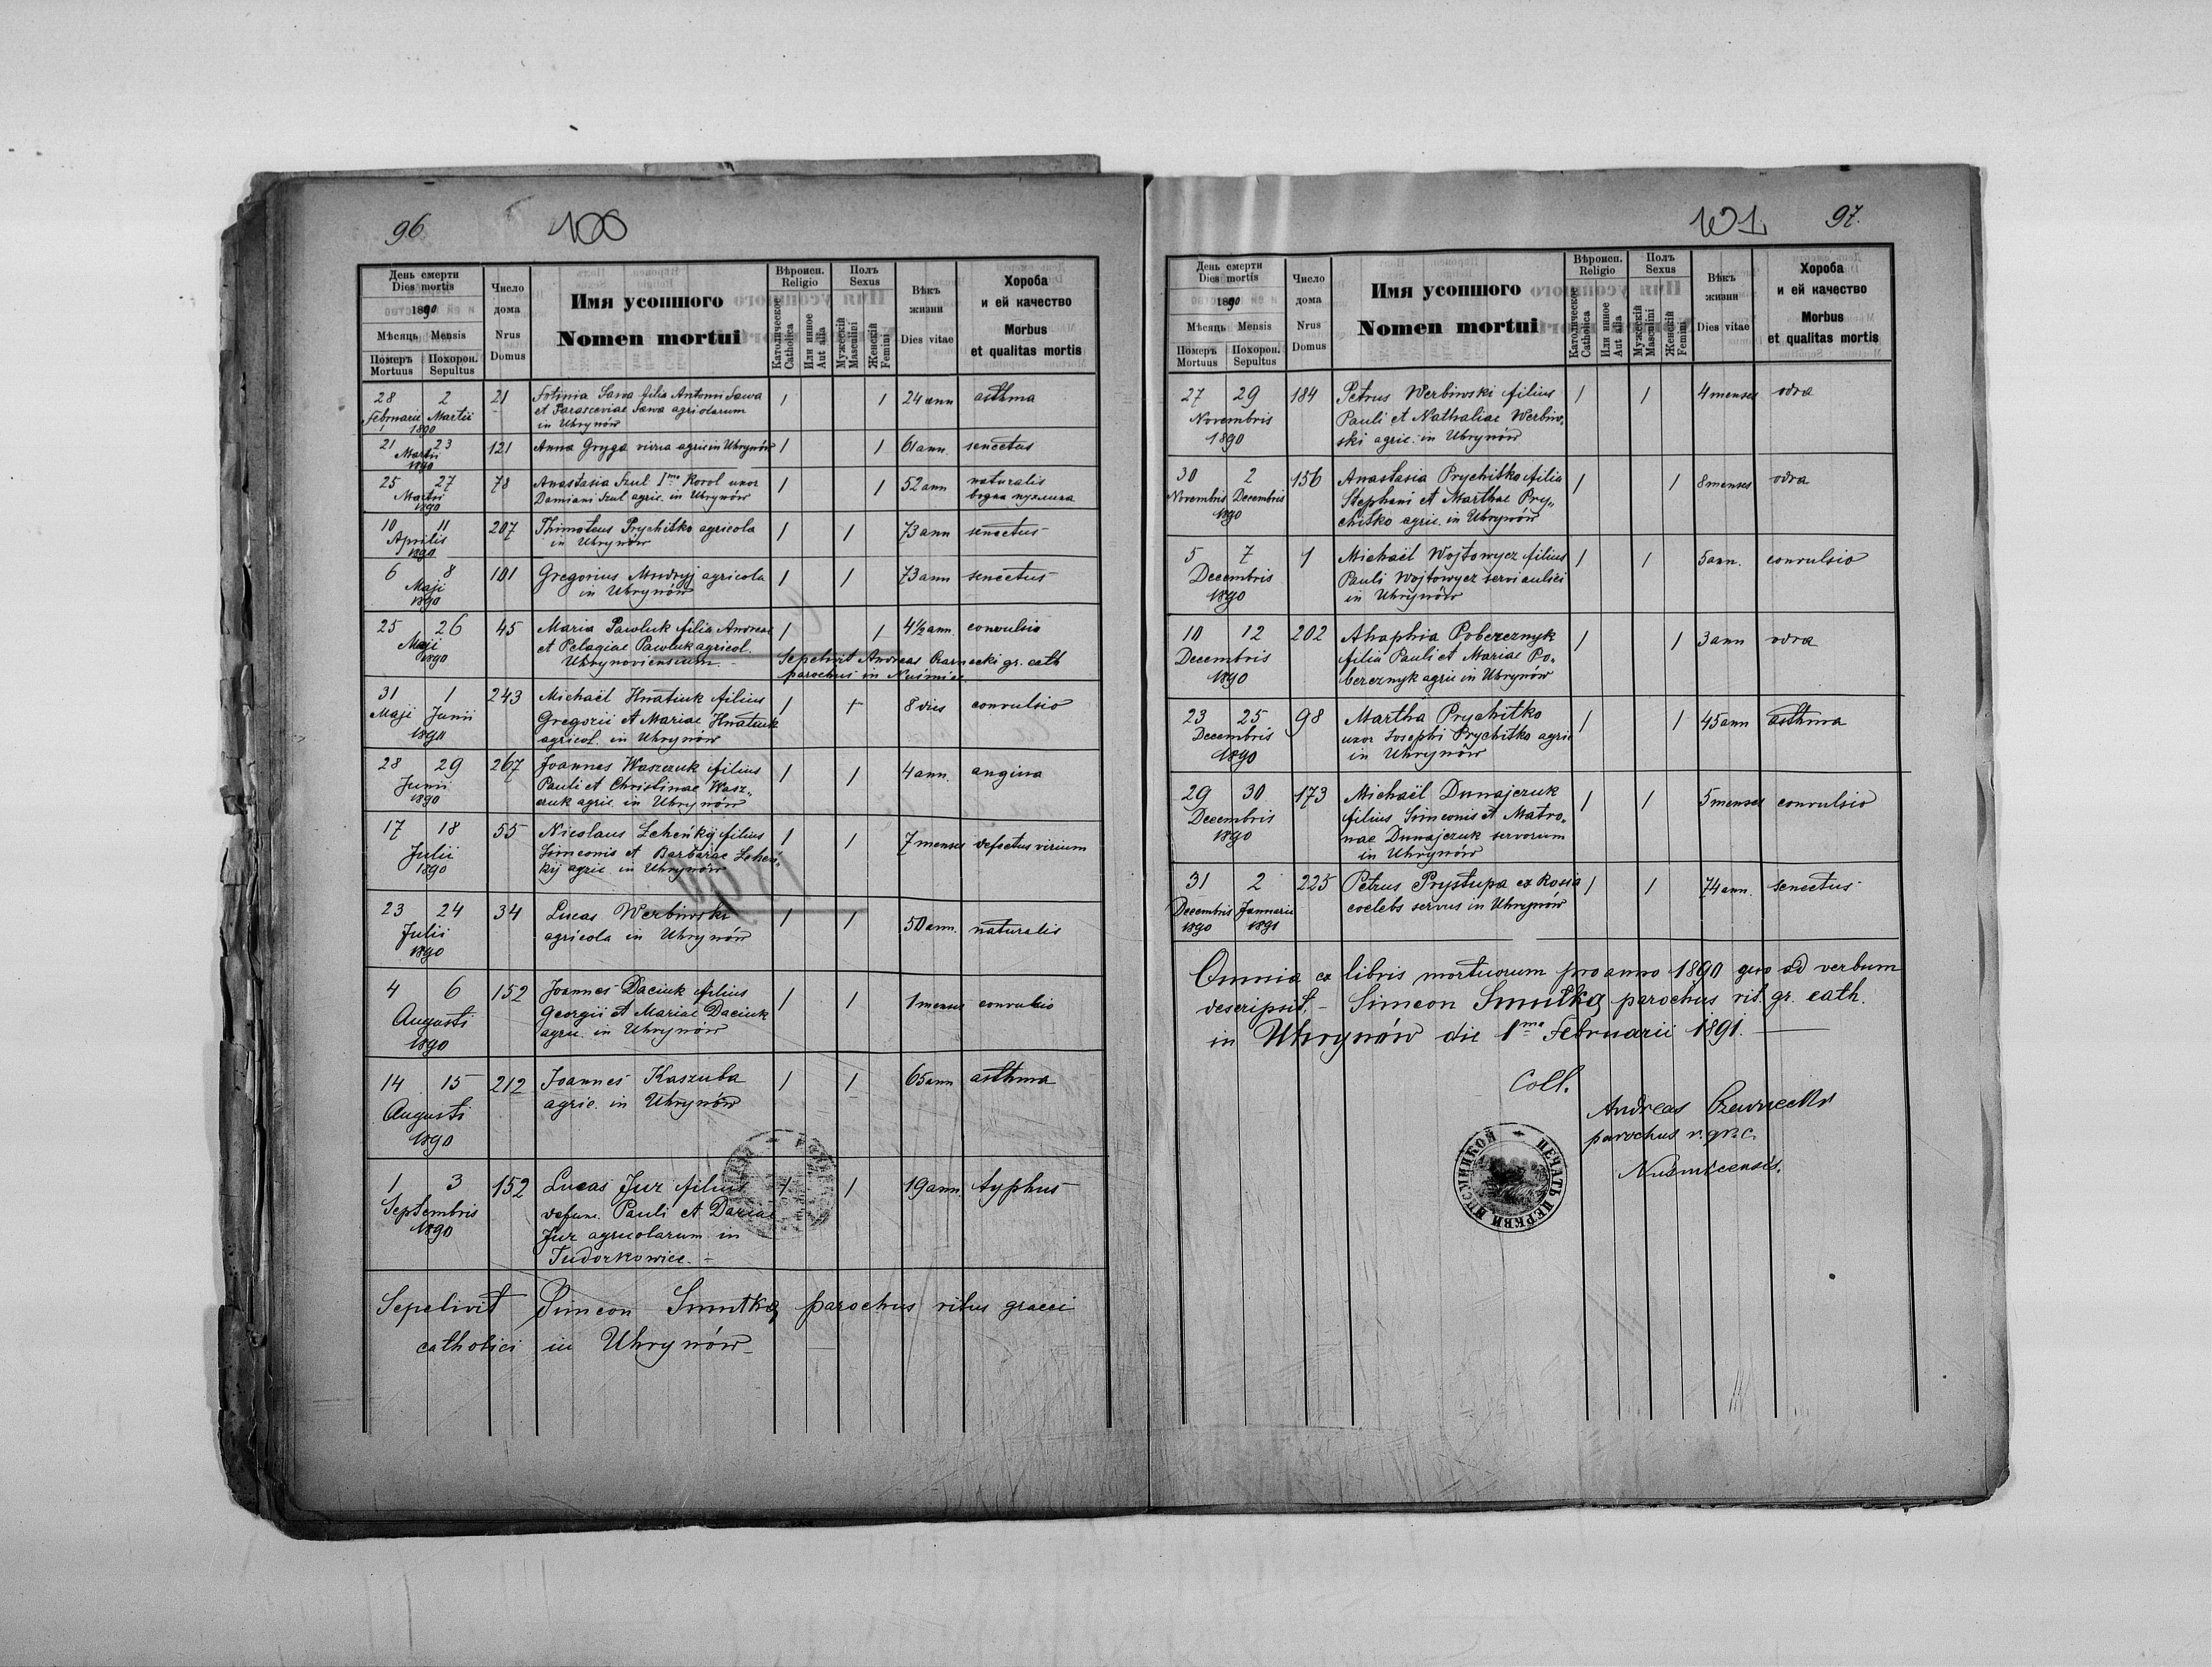 96
100
День смерти
Dies mortis
1890
Мѣсяць Mensis
Померъ Похорон.
Mortuus Sepultus
Число дома
Nrus Domus
Имя усопшого
Nomen mortui
Вѣроисп.
Religio
Католическое Catholica
Или инное Aut alia
Полъ
Sexus
Мужескій Masculini
Женскій Femini
Вѣкъ жизни
Dies vitae
Хороба
и ей качество
Morbus
et qualitas mortis
28 2 21 Fotinia Sawa filia Antonii Sawa 1 1 24 ann asthma
Februarii Martii et Parasceviae Sawa agricolarum
1890 in Uhrynów
21 23 121 Anna Gryga vidua agric in Uhrynów 1 1 61 ann. senectus
Martii
1890
25 27 78 Anastasia Szul 1mo Korol uxor 1 1 52 ann naturalis
Martii Damiani Szul agric. in Uhrynów водна пухлина
1890
10 11 207 Thimoteus Prychitko agricola 1 1 73 ann senectus
Aprilis in Uhrynów
1890
6 8 101 Gregorius Mudryj agricola 1 1 73 ann senectus
Maji in Uhrynów
1890
25 26 45 Maria Pawluk filia Andreae 1 1 4½ ann. convulsio
Maji et Pelagiae Pawluk agricol.
1890 Uhrynoviensium.
Sepelivit Andreas Czarnecki gr. cath
parochus in Nuśmice.
31 1 243 Michaël Hnatiuk filius 1 1 8 dies convulsio
Maji Junii Gregorii et Mariae Hnatiuk
1890 agricol. in Uhrynów
28 29 267 Joannes Waszczuk filius 1 1 4 ann. angina
Junii Pauli et Christinae Wasz„
1890 czuk agric. in Uhrynów
17 18 55 Nicolaus Leheńkij filius 1 1 7 menses defectus virium
Julii Simeonis et Barbarae Leheń„
1890 kij agric. in Uhrynów
23 24 34 Lucas Werbiwski 1 1 50 ann. naturalis
Julii agricola in Uhrynów
1890
4 6 152 Joannes Daciuk filius 1 1 1 mensis convulsio
Augusti Georgii et Mariae Daciuk
1890 agric. in Uhrynów
14 15 212 Joannes Kaszuba 1 1 65 ann asthma
Augusti agric. in Uhrynów
1890
1 3 152 Lucas Jur filius 1 1 19 ann. typhus
Septembris defunc. Pauli et Dariae
1890 Jur agricolarum in
Tudorkowice.
Sepelivit Simeon Smulka parochus ritus graeci
catholici in Uhrynów
101
97.
День смерти
Dies mortis
1890
Мѣсяць Mensis
Померъ Похорон.
Mortuus Sepultus
Число дома
Nrus Domus
Имя усопшого
Nomen mortui
Вѣроисп.
Religio
Католическое Catholica
Или инное Aut alia
Полъ
Sexus
Мужескій Masculini
Женскій Femini
Вѣкъ жизни
Dies vitae
Хороба
и ей качество
Morbus
et qualitas mortis
27 29 184 Petrus Werbiwski filius 1 1 4 menses odra
Novembris Pauli et Nathaliae Werbiw„
1890 ski agric. in Uhrynów
30 2 156 Anastasia Prychitko filia 1 1 8 menses odra
Novembris Decembris Stephani et Marthae Pry„
1890 chitko agric. in Uhrynów
5 7 1 Michaël Wojtowycz filius 1 1 5 ann. convulsio
Decembris Pauli Wojtowycz servi aulici
1890 in Uhrynów
10 12 202 Ahaphia Pobereznyk 1 1 3 ann odra
Decembris filia Pauli et Mariae Po„
1890 bereznyk agric in Uhrynów
23 25 98 Martha Prychitko 1 1 45 ann asthma
Decembris uxor Josephi Prychitko agric
1890 in Uhrynów
29 30 173 Michaël Dunajczuk 1 1 5 menses convulsio
Decembris filius Simeonis et Matro„
1890 nae Dunajczuk servorum
in Uhrynów
31 2 225 Petrus Prystupa ex Rosia 1 1 74 ann. senectus
Decembris Januarii coelebs servus in Uhrynów
1890 1891
Omnia ex libris mortuorum pro anno 1890 quo ad verbum
descripsit. Simeon Smulka parochus rit. gr. cath.
in Uhrynów die 1ma Februarii 1891.
Coll.
Andreas Czarnecki
parochus r. gr. c.
Nusmicensis.
ПЕЧАТЬ ЦЕРКВИ